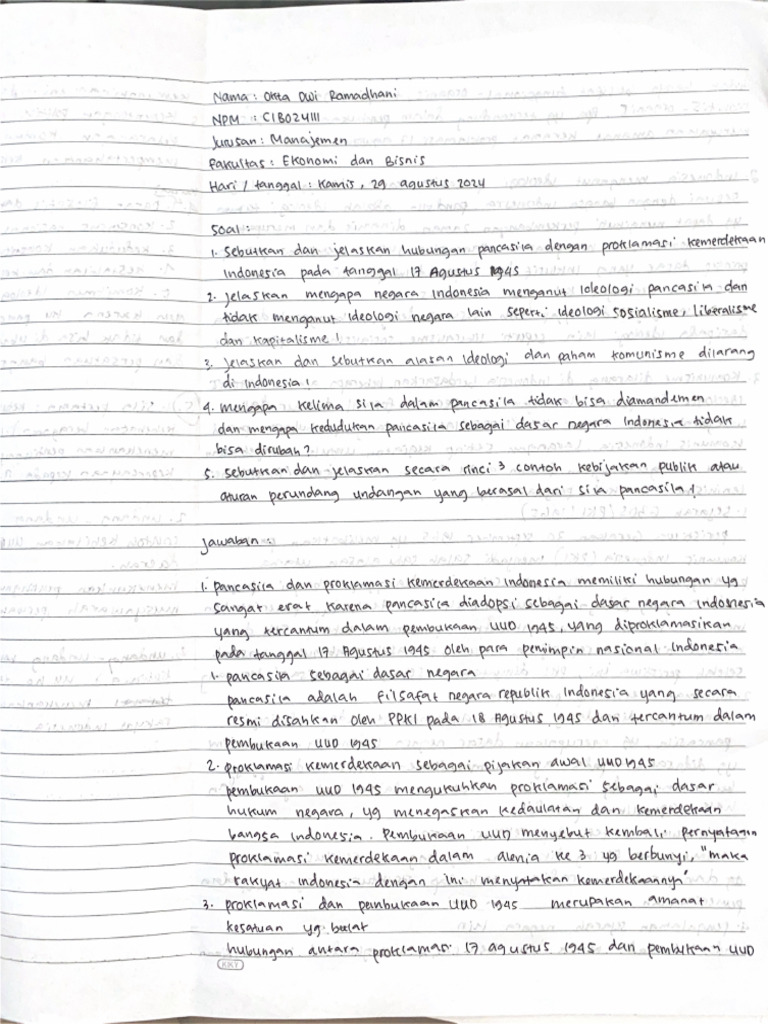 Nama : Okta Dwi Ramadhani
NPM : C1B024111
Jurusan : Manajemen
Fakultas : Ekonomi dan Bisnis
Hari / tanggal : Kamis, 29 agustus 2024
Soal :
1. Sebutkan dan jelaskan hubungan pancasila dengan proklamasi kemerdekaan
Indonesia pada tanggal 17 Agustus 1945
2. Jelaskan mengapa negara Indonesia menganut Ideologi pancasila dan
tidak menganut ideologi negara lain seperti ideologi sosialisme, liberalisme
dan kapitalisme !
3. Jelaskan dan sebutkan alasan Ideologi dan paham komunisme dilarang
di Indonesia !
4. mengapa kelima sila dalam pancasila tidak bisa diamandemen
dan mengapa kedudukan pancasila sebagai dasar negara Indonesia tidak
bisa dirubah ?
5. sebutkan dan jelaskan secara rinci 3 contoh kebijakan publik atau
aturan perundang undangan yang berasal dari sila pancasila !
Jawaban :
1. pancasila dan proklamasi kemerdekaan Indonesia memiliki hubungan yg
sangat erat karena pancasila diadopsi sebagai dasar negara Indonesia
yang tercantum dalam pembukaan UUD 1945, yang diproklamasikan
pada tanggal 17 Agustus 1945 oleh para pemimpin nasional Indonesia
1. pancasila sebagai dasar negara
pancasila adalah filsafat negara republik Indonesia yang secara
resmi disahkan oleh PPKI pada 18 Agustus 1945 dan tercantum dalam
pembukaan UUD 1945
2. proklamasi kemerdekaan sebagai pijakan awal UUD 1945
pembukaan UUD 1945 mengukuhkan proklamasi sebagai dasar
hukum negara, yg menegaskan kedaulatan dan kemerdekaan
bangsa Indonesia. Pembukaan UUD menyebut kembali pernyataan
proklamasi kemerdekaan dalam alenia ke 3 yg berbunyi, "maka
rakyat indonesia dengan ini menyatakan kemerdekaannya"
3. proklamasi dan pembukaan UUD 1945 merupakan amanat
kesatuan yg bulat
hubungan antara proklamasi 17 agustus 1945 dan pembukaan UUD
KKY